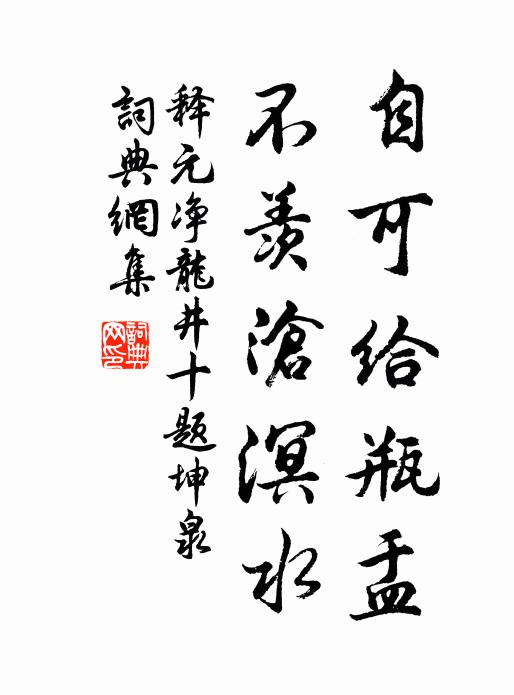 自可给瓶盂
不羡滄溟水
释元净龍井十题坤泉
詞典網集
詞典网印